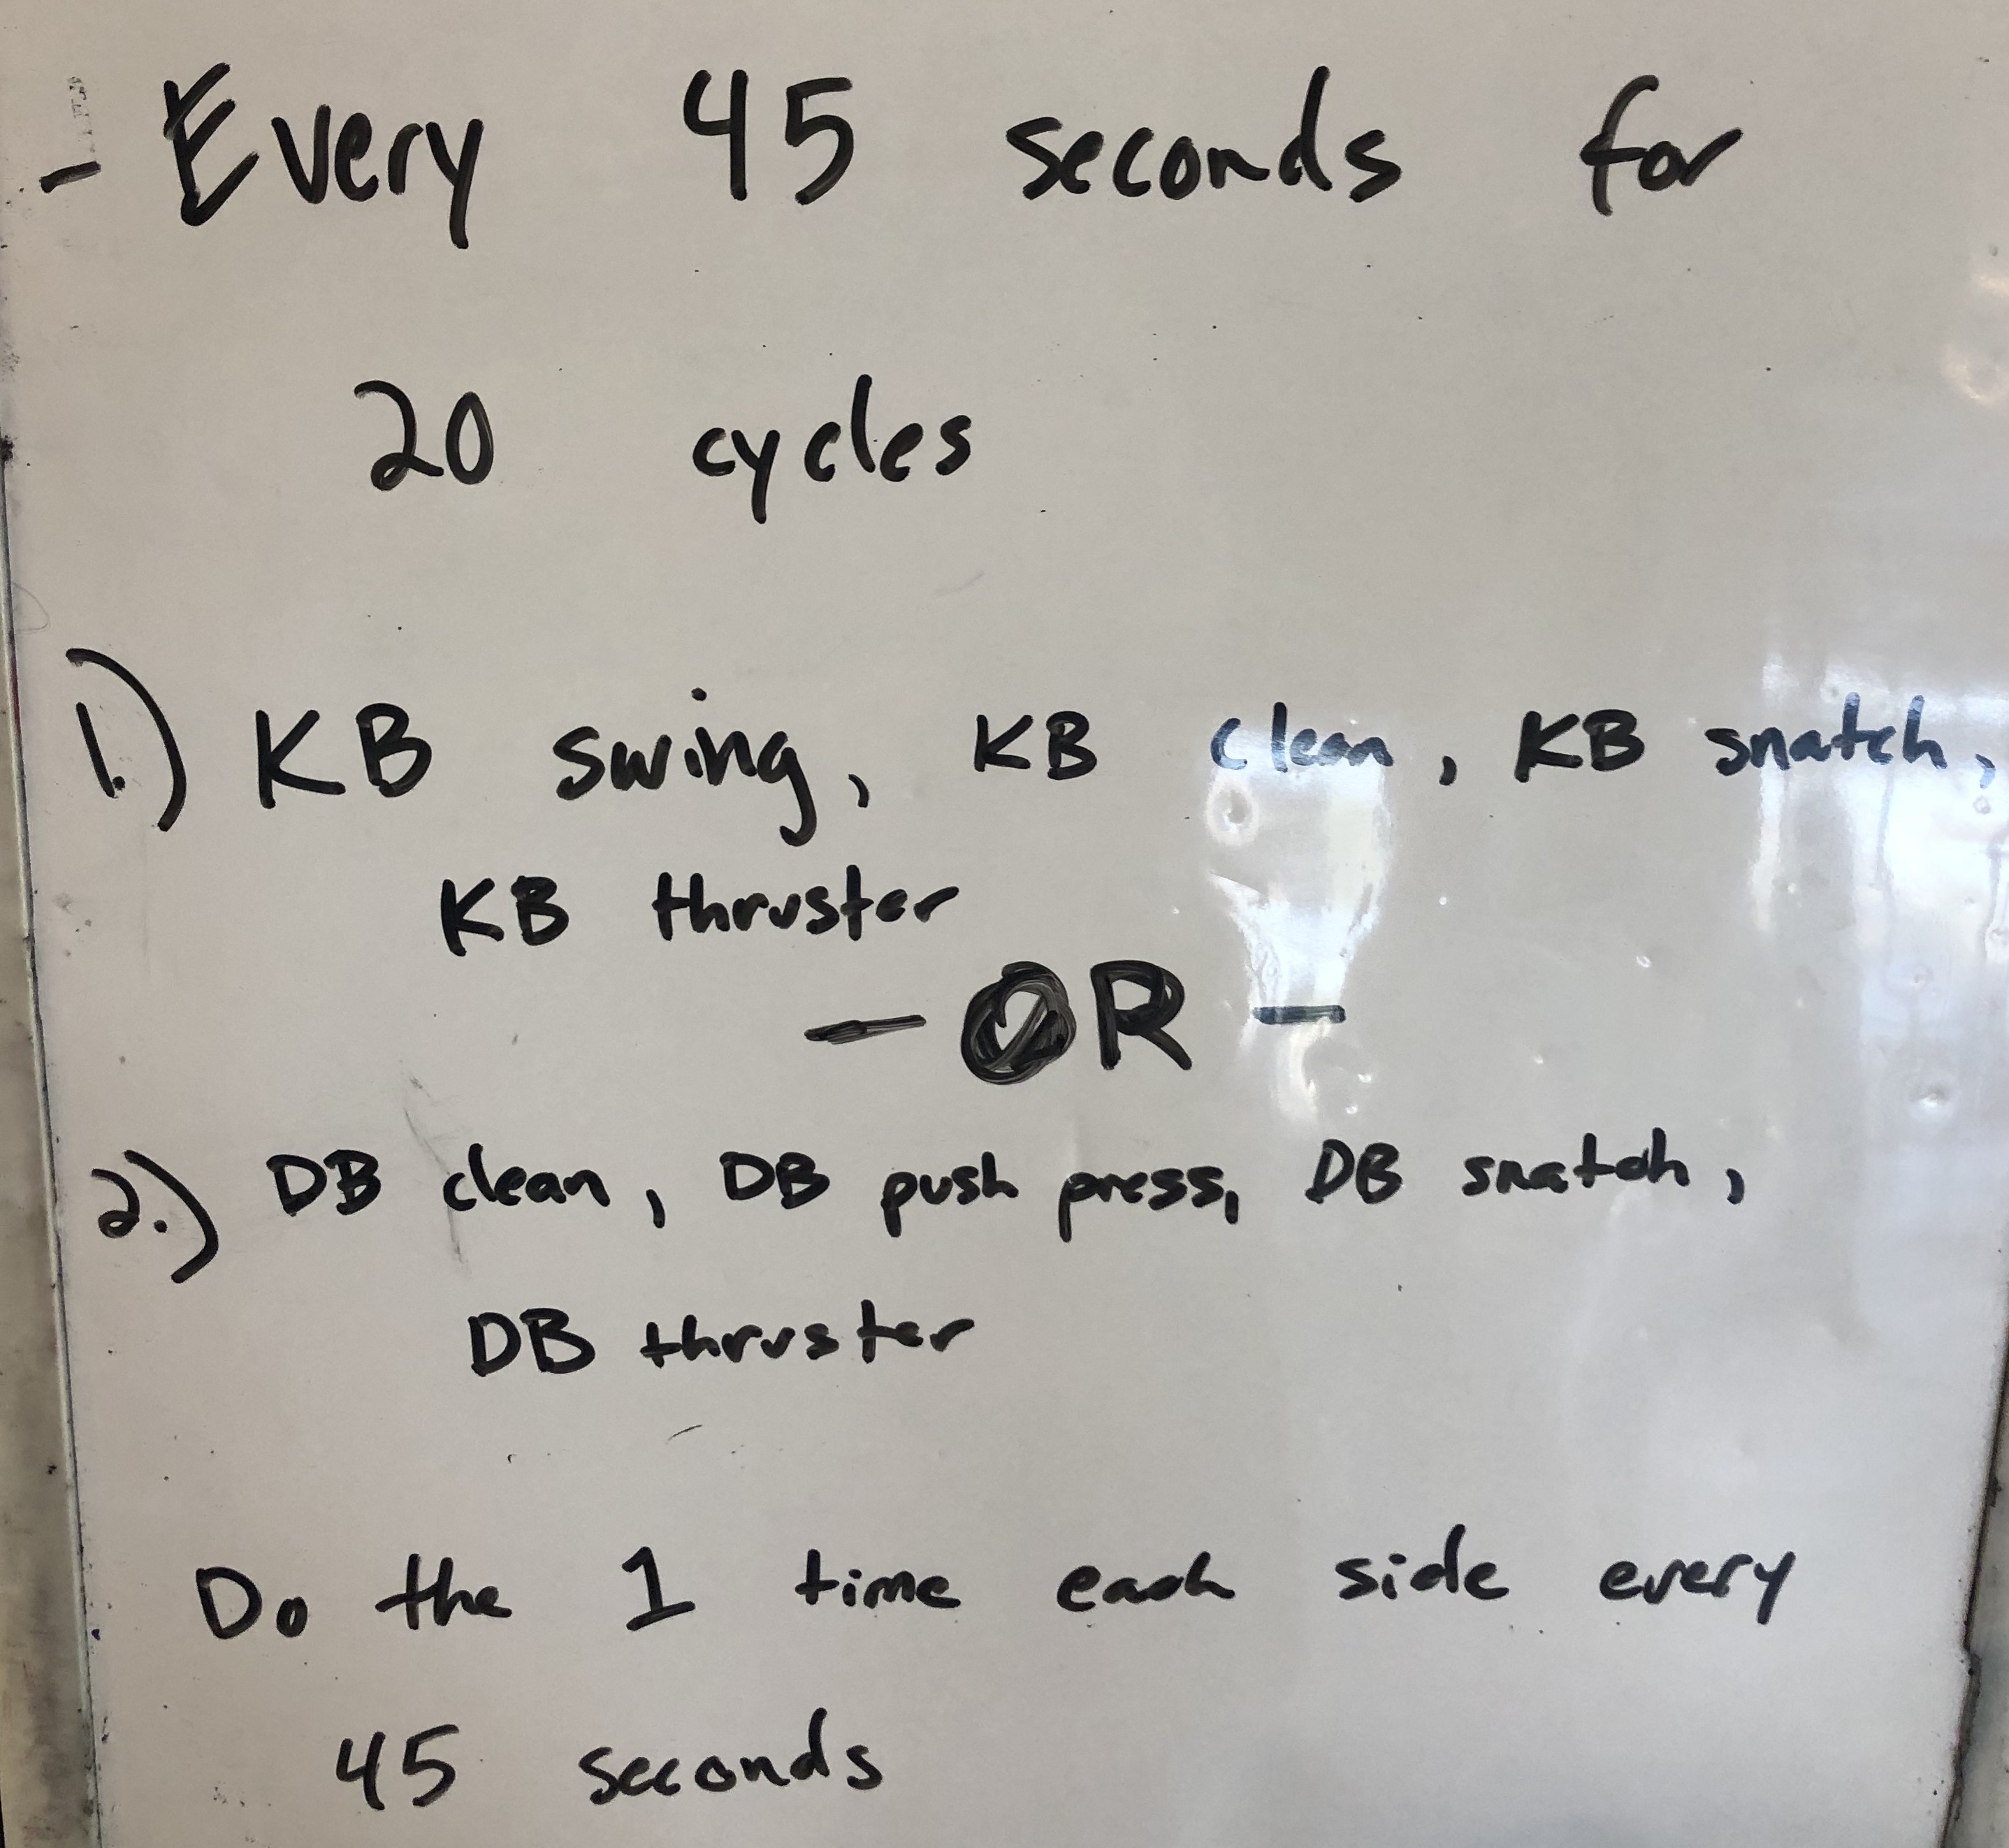 - Every 45 seconds for
20 cycles
1.) KB swing, KB clean, KB snatch,
KB thruster
- OR -
2.) DB clean, DB push press, DB snatch,
DB thruster
Do the 1 time each side every
45 seconds